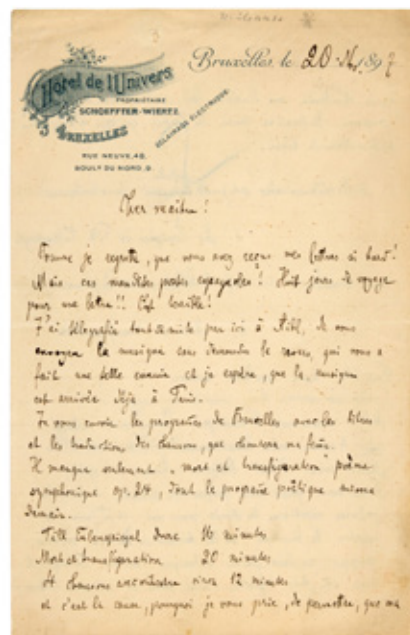 Hôtel de l'Univers
PROPRIÉTAIRE
SCHOEFFTER-WIERTZ
BRUXELLES
ECLAIRAGE ÉLECTRIQUE
RUE NEUVE, 48.
BOULd DU NORD, 9.
Bruxelles, le 20 1897
Cher
Comme je regrette, que vous avez reçus mes lettres si tard!
Mais ces maudites postes espagnoles! Huit jours de voyage
pour une lettre!!
J'ai télégrafié tout de suite à Aibl, de vous
la musique sans le qui vous a
fait une telle et je espère, que la musique
est arrivée déjà à Paris.
Je vous envoie les programmes de Bruxelles avec les titres
et les traductions des chansons, que chantera ma femme.
Il manque seulement "mort et transfiguration" poème
symphonique op. 24, dont le programme poétique
demain.
Till Eulenspiegel dure 16 minutes
Mort et transfiguration 20 minutes
4 chansons avec orchestre circa 12 minutes
et c'est la cause, pourquoi je vous prie, de permettre, que ma